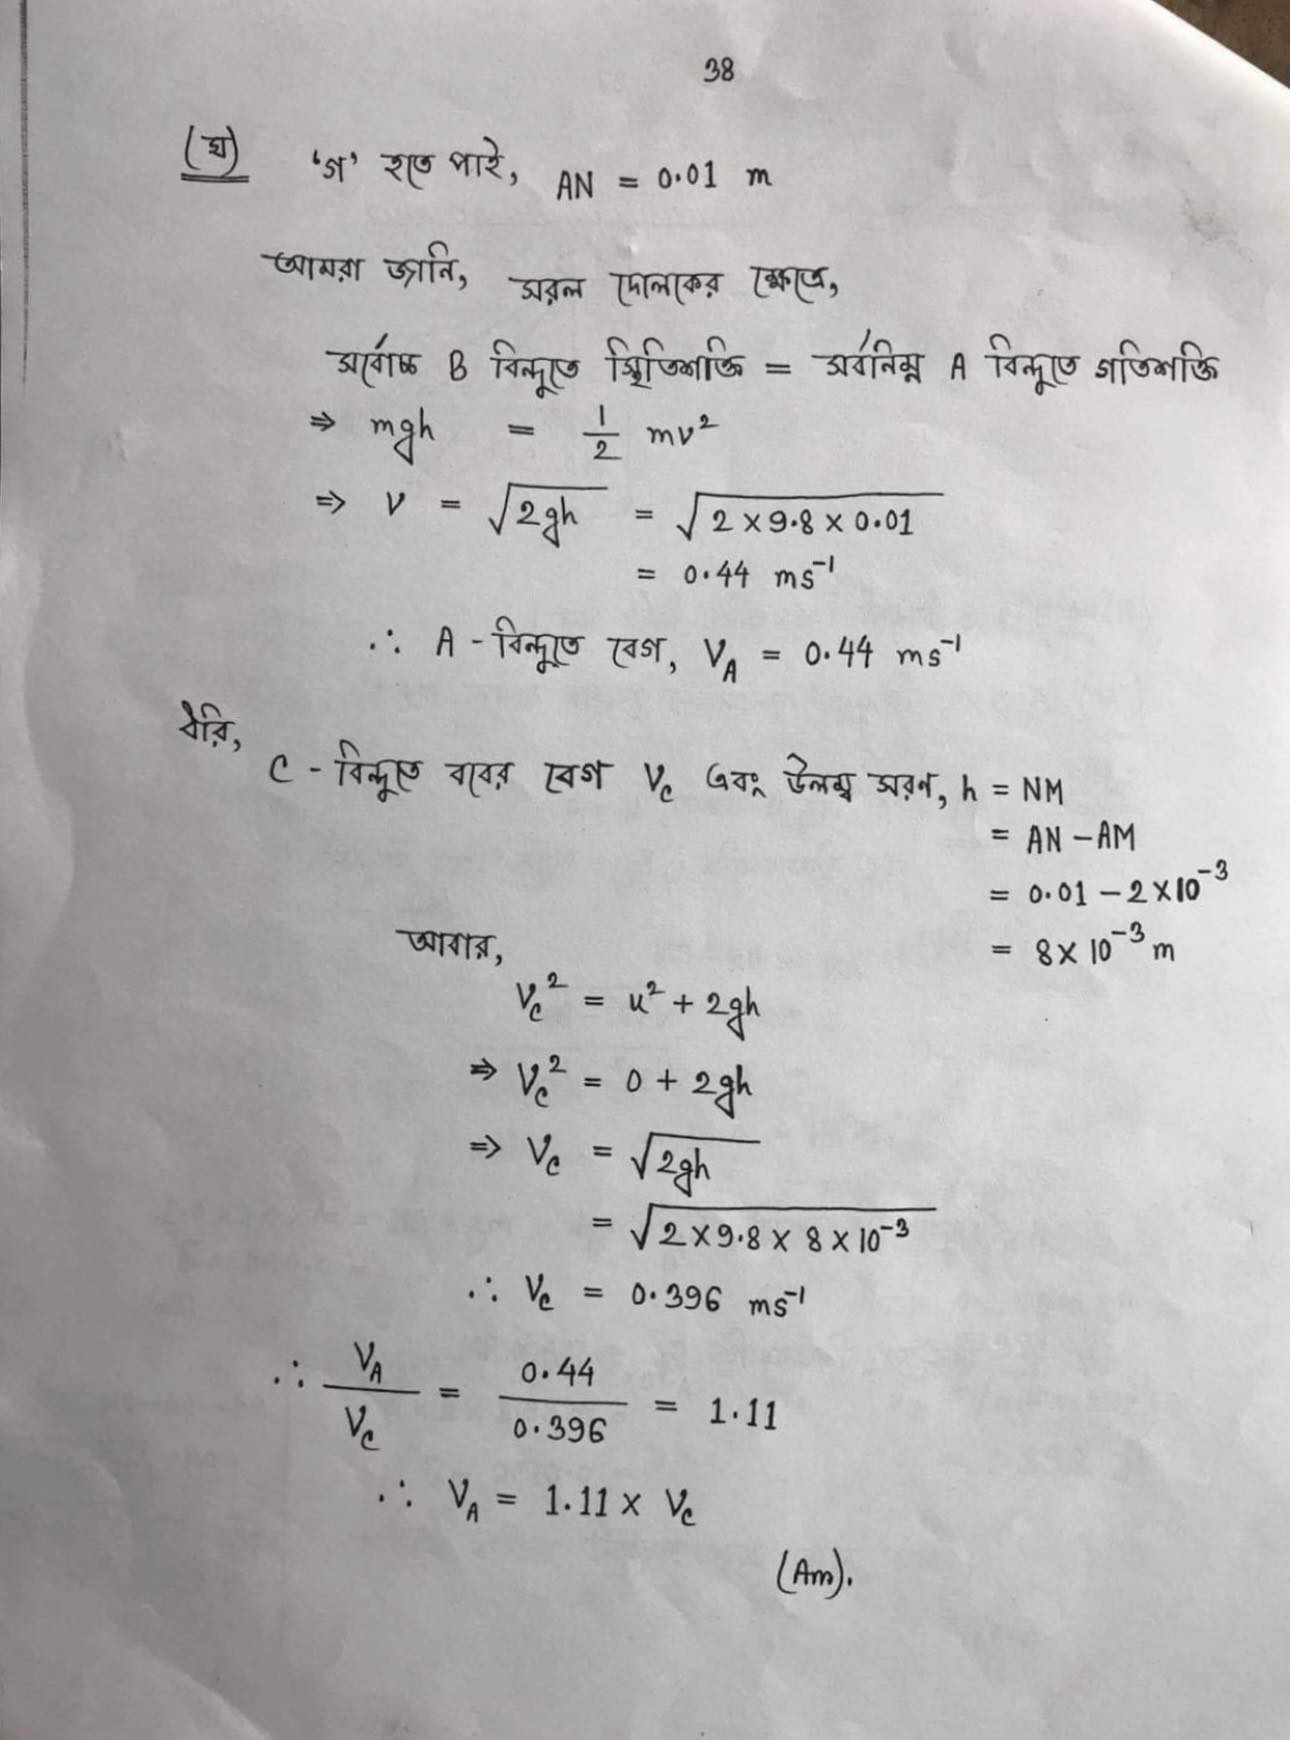 38
(ঘ) ‘গ’ হতে পাই, AN = 0.01 m
আমরা জানি, সরল দোলকের ক্ষেত্রে,
সর্বোচ্চ B বিন্দুতে স্থিতিশক্তি = সর্বনিম্ন A বিন্দুতে গতিশক্তি
⇒ mgh = 1/2 mv²
⇒ v = √2gh = √2 × 9.8 × 0.01
= 0.44 ms⁻¹
∴ A - বিন্দুতে বেগ, V_A = 0.44 ms⁻¹
ধরি,
C - বিন্দুতে ববের বেগ V_C এবং উলম্ব সরণ, h = NM
= AN − AM
= 0.01 − 2 × 10⁻³
= 8 × 10⁻³ m
আবার,
V_C² = u² + 2gh
⇒ V_C² = 0 + 2gh
⇒ V_C = √2gh
= √2 × 9.8 × 8 × 10⁻³
∴ V_C = 0.396 ms⁻¹
∴ V_A/V_C = 0.44/0.396 = 1.11
∴ V_A = 1.11 × V_C
(Am).